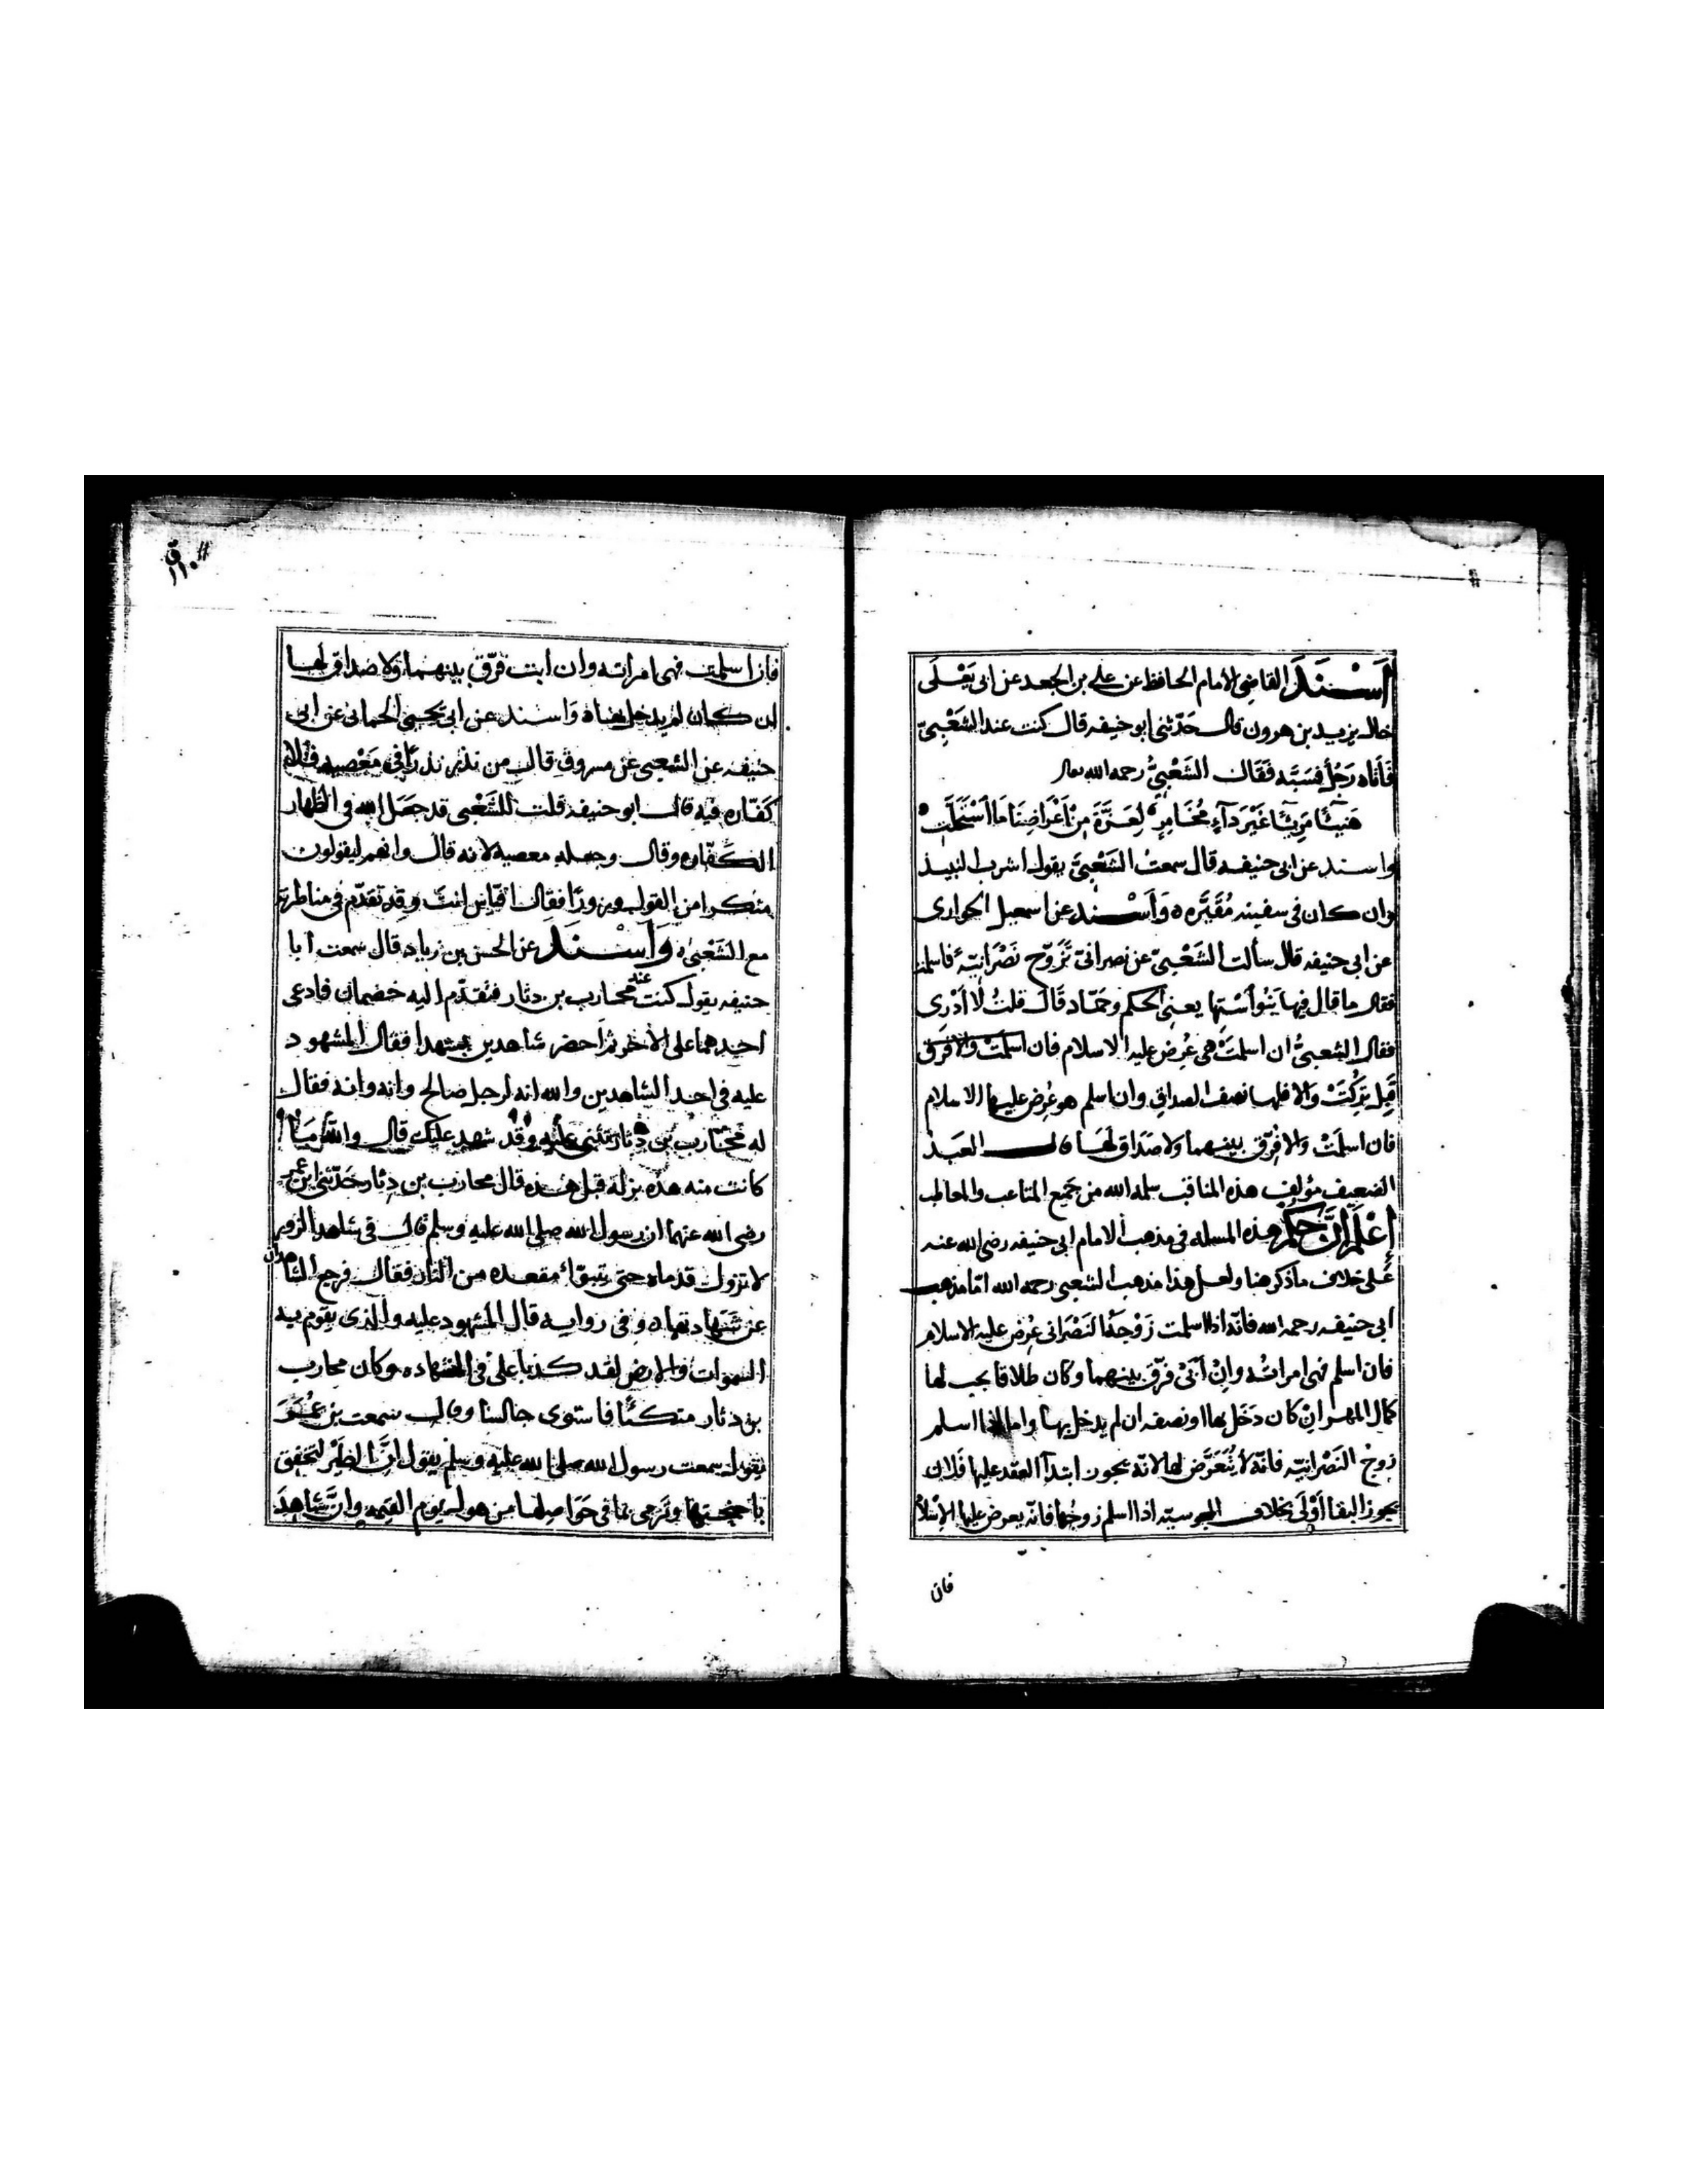 أَسْنَدَ القاضى الامام الحافظ عن على بن الجعد عن ابى يَعْلَى
خال يزيد بن هرون قال حَدّثنى ابو حنيفه قال كنت عند الشَعْبِىّ
فَأتاه رَجُل فسَبَّه فَقَال الشَعْبِىُّ رحمه الله تعالى
هَنيئًا مَرِيئًا غَيْرَ دَآءٍ مُخَامِرٍ لِعَزَّةَ مِنْ أَعْرَاضِنَا مَا اسْتَحَلَّتِ
واسند عن ابى حنيفه قال سمعتُ الشَعْبِىَّ يقول اشرب النبيذ
وان كان فى سفينه مُقَيَّره وَأَسْنَد عن اسمعيل الحوارى
عن ابى حنيفه قال سألت الشَعْبِىّ عن نصرانىّ تَزَوّج نَصْرَانِيّة فاسلمت
فقال ما قال فيها بَنُو اسْتِها يعنى الحكم وحَمّاد قَالَ قلتُ لا أدْرِى
فقال الشعبىُّ ان اسلمتْ هى عُرِض عليه الاسلام فان اسلمت والا فرق
قَبِل تُرِكَتْ والا فلها نصف الصداق وان اسلم هو عُرِض عليها الاسلام
فان اسلمَتْ والا فرّق بينهما ولا صَدَاق لَهَا قال العَبد
الضعيف مؤلف هذه المناقب سلمه الله من جَميع المتاعب والمعاطب
إِعْلَم انّ حكم هذه المسله فى مذهب الامام ابى حنيفه رضى الله عنه
عَلى خلاف ما ذكر هنا ولعل هذا مذهب الشعبى رحمه الله امّا مذهب
ابى حنيفه رحمه الله فانّه اذا اسلمت زَوْجَة النَصْرَانى عُرِض عليه الاسلام
فان اسلم فهى امراتُه وانْ أَبَىْ فرّق بينهما وكان طلاقا يجب لها
كمال المهر ان كان دَخَل بها او نصفه ان لم يدخل بها واما اذا اسلم
زوجُ النَصْرَانيّه فانّه لا يُتَعَرَّض لها لانّه يجوز ابتداآ العقد عليها فَلان
يجوز البقا أَوْلَى بخلاف المجوسيّه اذا اسلم زوجُها فانّه يعرض عليها الاسلام
فان
ق ١١٠
فان اسلمت فهى امراته وان ابت فرّق بينهما ولا صداق لها
ان كان لم يدخل بها ه وَاسند عن ابى يحيى الحمانى عن ابى
حنيفه عن الشعبى عن مسروق قال من نذر نذرًا فى مَعْصيه فلا
كفّاره فيه قال ابو حنيفه قلت للشَعْبى قد جعَل الله فى الظهار
الكَفّاره وقال وجعله معصيه لانه قال وانهم ليقولون
منكرا من القول وزورًا فقال اقيّاس انتَ وقد تقدّم فى مناظرته
مع الشَعْبِى ه وَأَسْنَدَ عن الحسن بن زياد قال سمعت ابا
حنيفه يقول كنت عند محارب بن دثار فتقدّم اليه خصمان فادعى
احدهما على الاخر ثم احضر شاهدين يشهدا فقال المشهود
عليه فى احد الشاهدين والله انه لرجل صالح وانه وانه فقال
له محارب بن دثار تثنى عليه وقد شهد عليك قال والله مَا
كانت منه هذه بزلة قبل هذه قال محارب بن دِثار حَدّثنى ابن عمر
رضى الله عنهما ان رسول الله صلى الله عليه وسلم قال فى شاهد الزور
لا تزول قدماه حتى يتبوّأ مقعده من النار فقال فرجع الشاهدان
عن شهادتهما ه وفى روايه قال المشهود عليه والذى يقوم به
السموات والارض لقد كذبا علىّ فى الشهاده وكان محارب
بن دثار متكئًا فاستوى جالسا وقال سمعت بن عُمَرَ
يقول سمعت رسول الله صلى الله عليه وسلم يقول انَّ الطيْر لتخفق
باجنحتها وتَرمى بما فى حَوَاصلها من هول يوم القيمه وانّ شاهِدَ